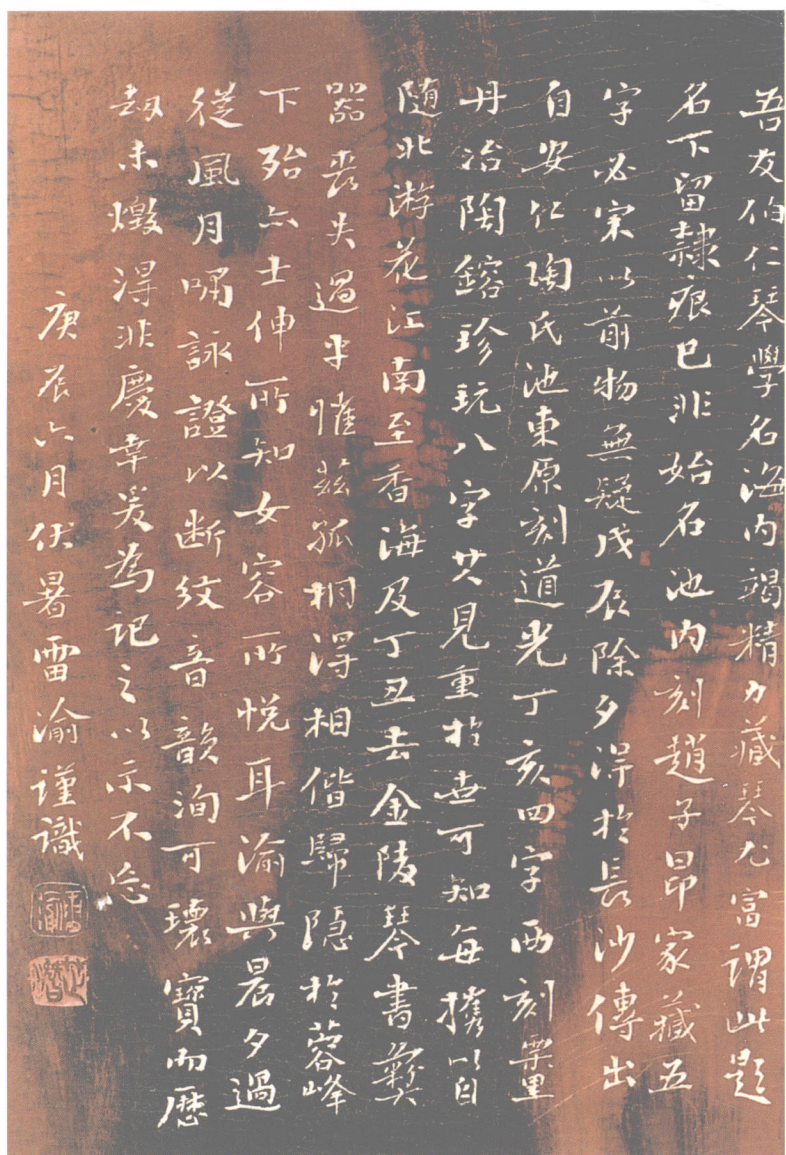 吾友伯仁琴學名海内竭精力藏琴尤富謂此題
名下留隸痕已非始名池内刻趙子昂家藏五
字必宋以前物無疑戊辰除夕得於長沙傳出
自安仁陶氏池東原刻道光丁亥四字西刻栗里
丹冶陶鎔珍玩八字其見重於世可知每攜以自
随北游花江南至香海及丁丑去金陵琴書彝
器喪失過半惟茲孤桐得相偕歸隱於蓉峰
下殆亦士伸所知女容所悦耳瀹與晨夕過
從風月嘯詠證以断紋音韻洵可瓌寶而歷
劫未燬得非慶幸爰為記之以示不忘
庚辰六月伏暑雷瀹謹識